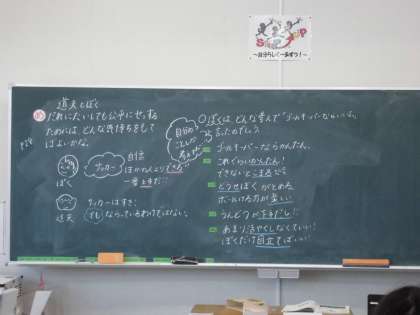 道夫とぼく
だれにたいしても公平にせっする
ためには どんな気持ちをもて
ばよいかな。
ぼく
サッカー
自信
ほかの人よりできる
一番上手だ!!
道夫
サッカーはすき。
ならっているわけではない。
自分の
ことしか
考えず
○ぼくは、どんな考えで「ゴールキーパーならいいよ。」
と言ったのでしょう
ゴールキーパーならかんたん。
これぐらいかんたん!
できないとこまるなぁ
どうせぼくがとめる。
ボールける方が楽しい
うんどうが苦手だし
あまり活やくしなくていい!
ぼくだけ目立てばいい!
～自分らしく一歩ずつ!～